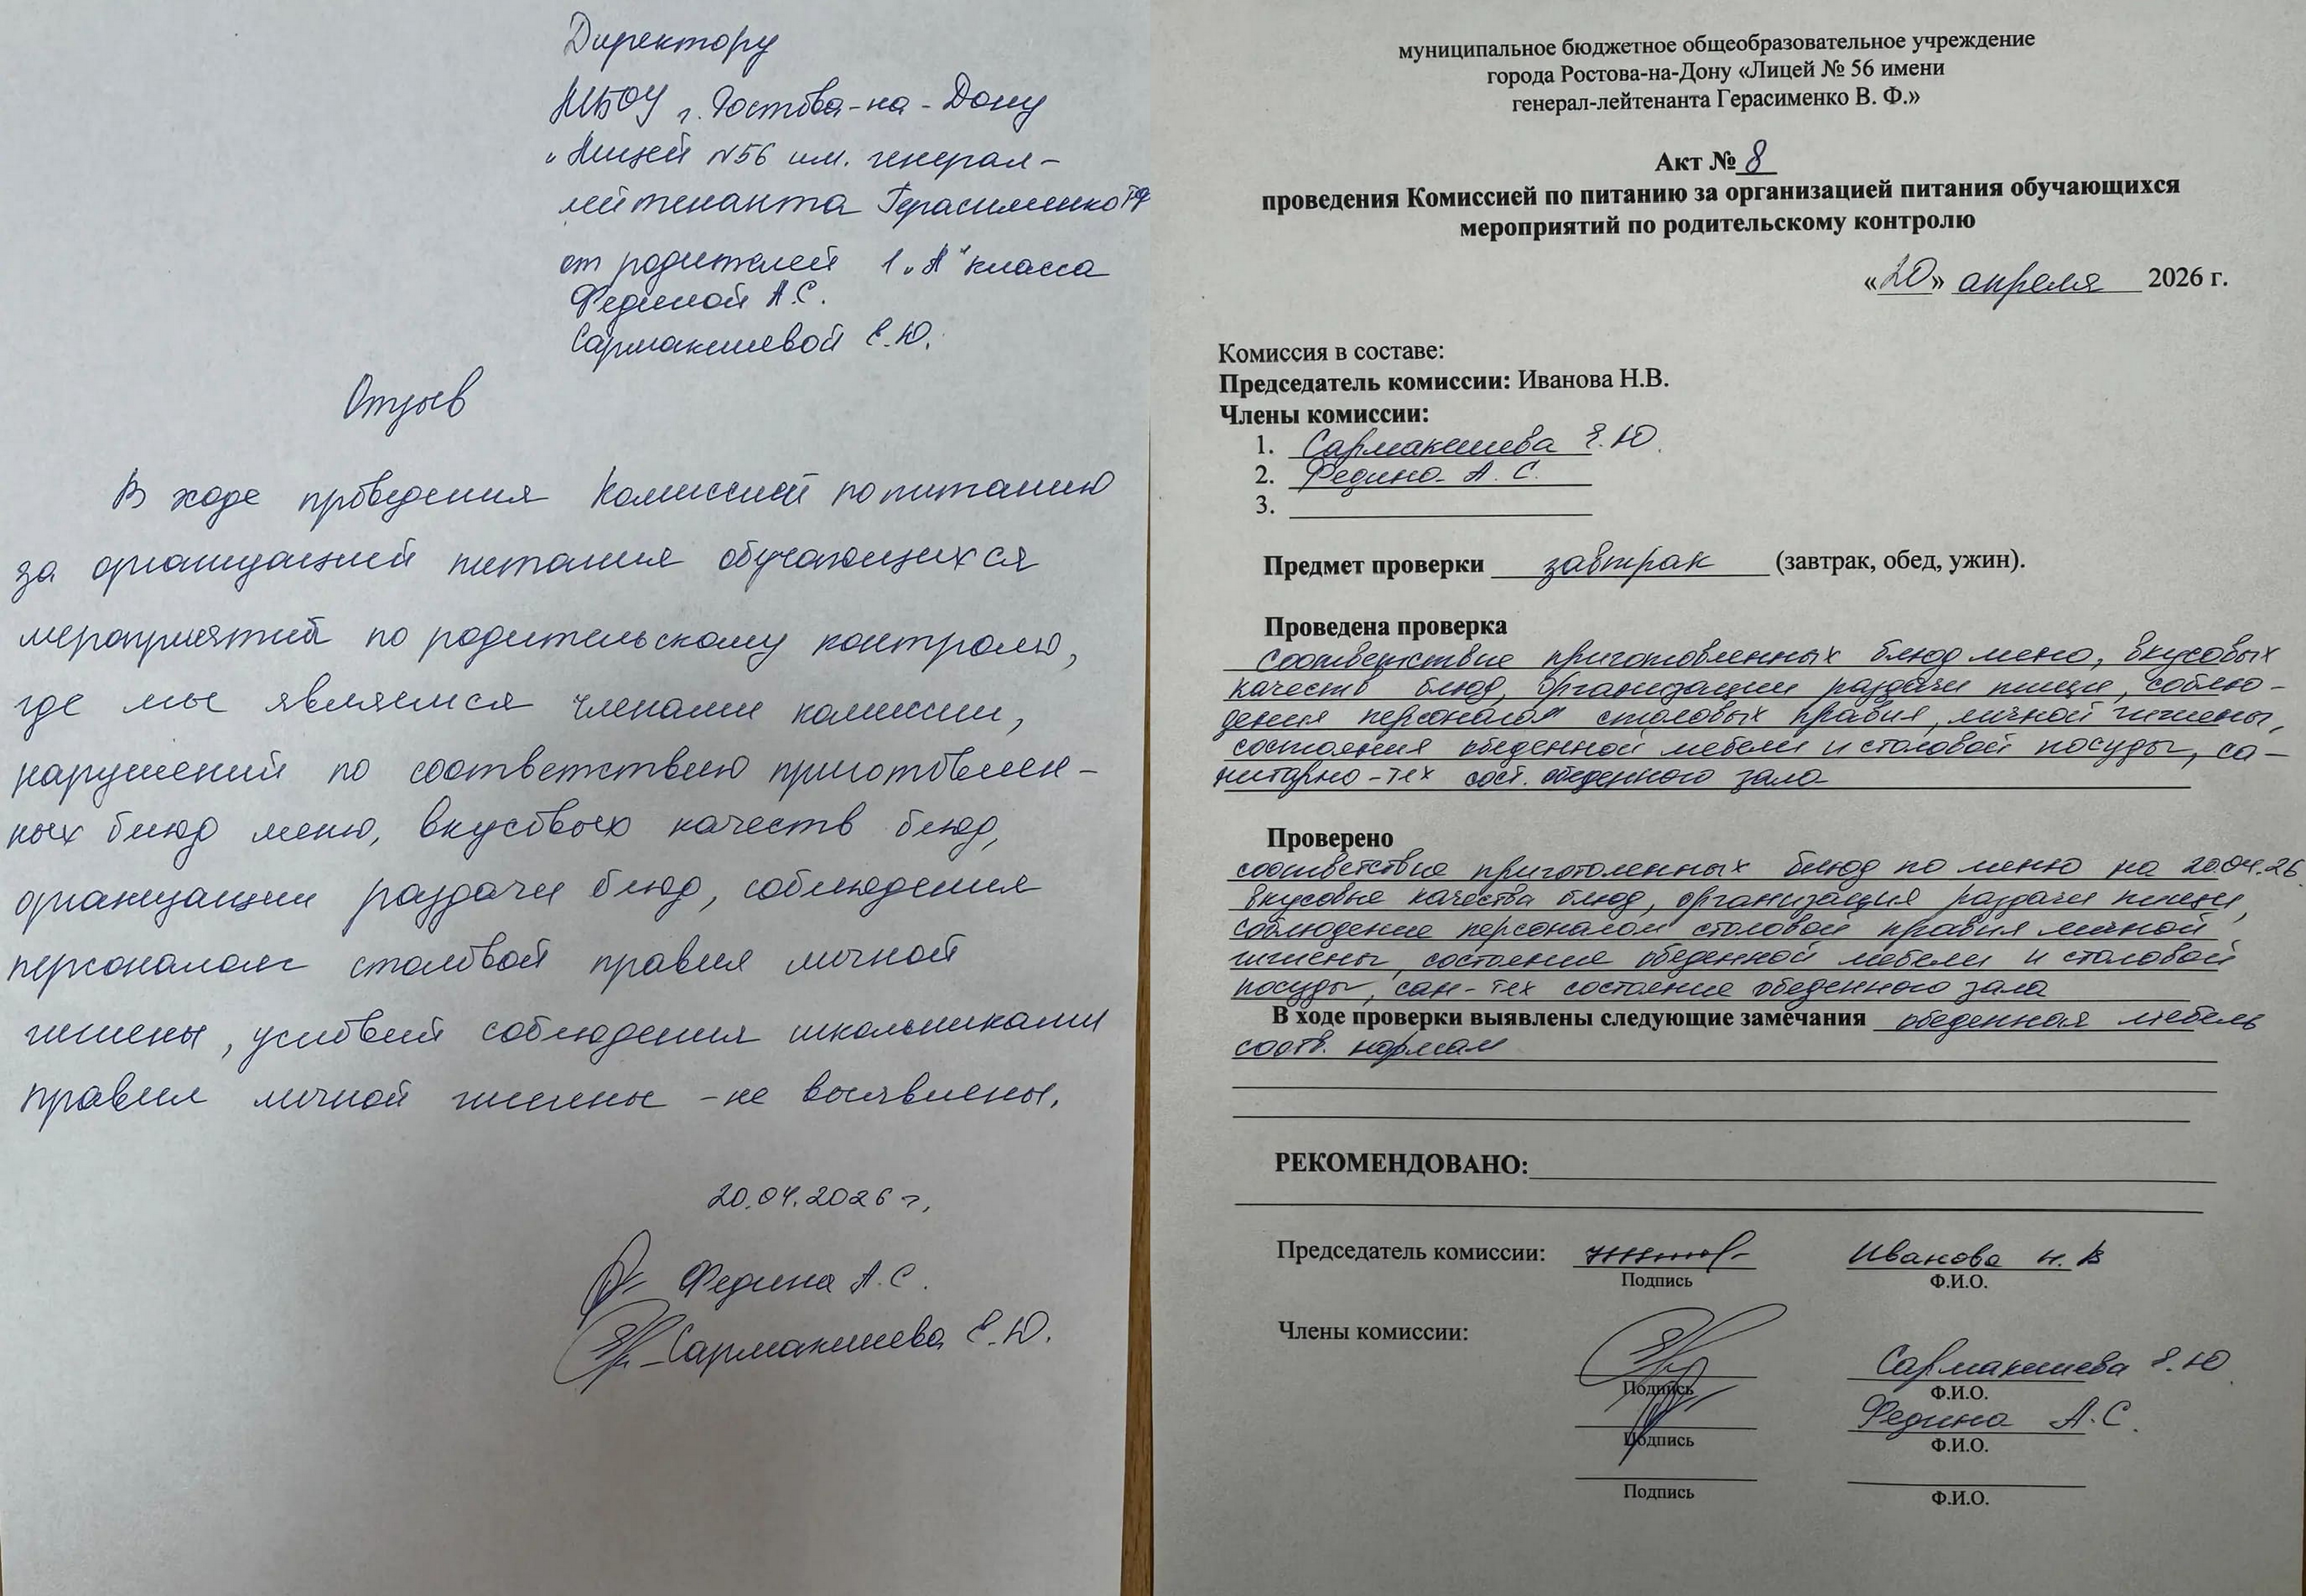 Директору
МБОУ г. Ростова-на-Дону
"Лицей №56 им. генерал-
лейтенанта Герасименко
от родителей 1 "А" класса
Фединой А.С.
Сармакешевой Е.Ю.
Отзыв
В ходе проведения Комиссией по питанию
за организацией питания обучающихся
мероприятий по родительскому контролю,
где мы являемся членами комиссии,
нарушений по соответствию приготовлен-
ных блюд меню, вкусовых качеств блюд,
организации раздачи блюд, соблюдения
персоналом столовой правил личной
гигиены, условий соблюдения школьниками
правил личной гигиены - не выявлены.
20.04.2026 г.
Федина А.С.
Сармакешева Е.Ю.
муниципальное бюджетное общеобразовательное учреждение
города Ростова-на-Дону «Лицей № 56 имени
генерал-лейтенанта Герасименко В. Ф.»
Акт № 8
проведения Комиссией по питанию за организацией питания обучающихся
мероприятий по родительскому контролю
«20» апреля 2026 г.
Комиссия в составе:
Председатель комиссии: Иванова Н.В.
Члены комиссии:
1. Сармакешева Е.Ю.
2. Федина А.С.
3.
Предмет проверки завтрак (завтрак, обед, ужин).
Проведена проверка
соответствие приготовленных блюд меню, вкусовых
качеств блюд, организации раздачи пищи, соблю-
дения персоналом столовых правил, личной гигиены,
состояния обеденной мебели и столовой посуды, са-
нитарно-тех сост. обеденного зала
Проверено
соответствие приготоленных блюд по меню на 20.04.26
вкусовые качества блюд, организация раздачи пищи,
соблюдение персоналом столовой правил личной
гигиены, состояние обеденной мебели и столовой
посуды, сан-тех состояние обеденного зала
В ходе проверки выявлены следующие замечания обеденная мебель
соотв. нормам
РЕКОМЕНДОВАНО:
Председатель комиссии: Иванова Н.В
Подпись Ф.И.О.
Члены комиссии:
Сармакешева Е.Ю
Подпись Ф.И.О.
Федина А.С.
Подпись Ф.И.О.
Подпись Ф.И.О.